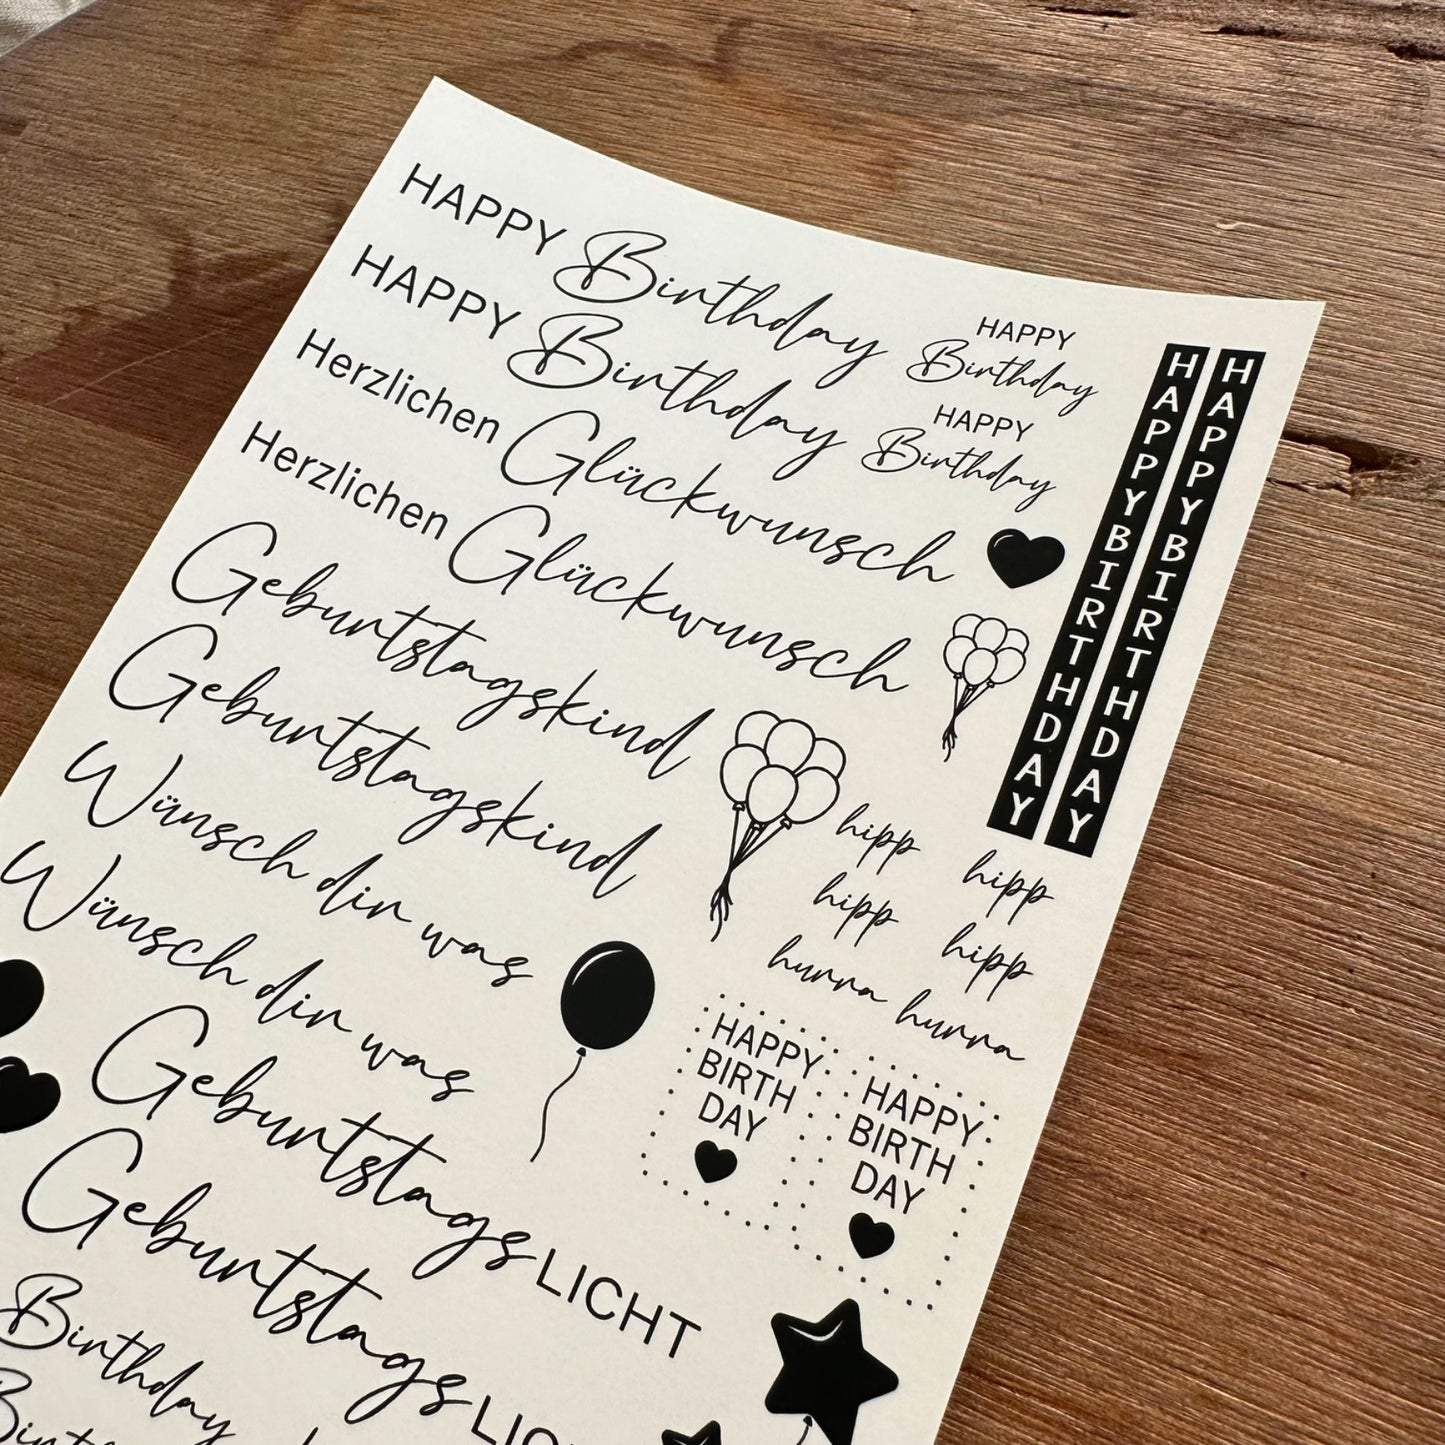 HAPPY Birthday
HAPPY Birthday
Herzlichen Glückwunsch
Herzlichen Glückwunsch
Geburtstagskind
Geburtstagskind
Wünsch dir was
Wünsch dir was
Geburtstagslicht
Geburtstags
Birthday
HAPPY
Birthday
HAPPY
Birthday
HAPPY BIRTHDAY
HAPPY BIRTHDAY
hipp
hipp
hurra
hipp
hipp
hurra
HAPPY
BIRTH
DAY
HAPPY
BIRTH
DAY